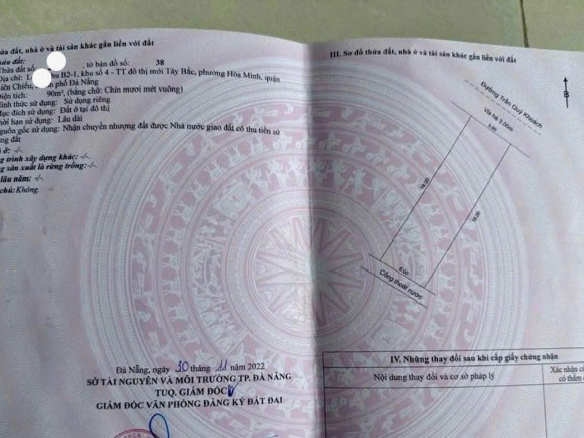 hửa đất, nhà ở và tài sản khác gắn liền với đất
hửa đất:
Thửa đất số: , tờ bản đồ số: 38
Địa chỉ: B2-1, khu số 4 - TT đô thị mới Tây Bắc, phường Hòa Minh, quận
iên Chiểu, phố Đà Nẵng
iện tích: 90m², (bằng chữ: Chín mươi mét vuông)
ình thức sử dụng: Sử dụng riêng
ục đích sử dụng: Đất ở tại đô thị
hời hạn sử dụng: Lâu dài
guồn gốc sử dụng: Nhận chuyển nhượng đất được Nhà nước giao đất có thu tiền sử
ng đất
ở: -/-
g trình xây dựng khác: -/-
g sản xuất là rừng trồng: -/-
lâu năm: -/-
chú: Không.
Đà Nẵng, ngày 30 tháng 11 năm 2022
SỞ TÀI NGUYÊN VÀ MÔI TRƯỜNG TP. ĐÀ NẴNG
TUQ. GIÁM ĐỐC
GIÁM ĐỐC VĂN PHÒNG ĐĂNG KÝ ĐẤT ĐAI
III. Sơ đồ thửa đất, nhà ở và tài sản khác gắn liền với đất
B
Đường Trần Quý Khoách
Vỉa hè 3.00m
5.00
18.00
18.00
5.00
Cống thoát nước
IV. Những thay đổi sau khi cấp giấy chứng nhận
Nội dung thay đổi và cơ sở pháp lý
Xác nhận c
có thẩm